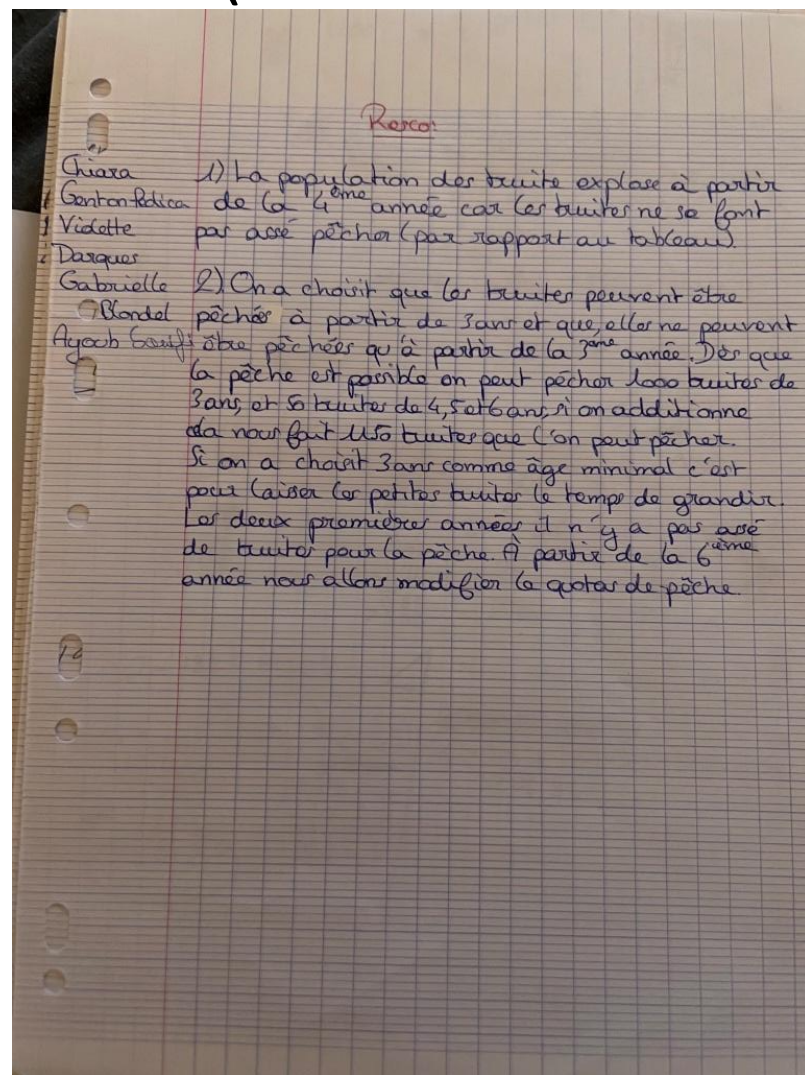 Rosco:
Chiara 1) La population des truite explose à partir
Genton Fedica de la 4ème année car les truites ne se font
Violette pas assé pêcher (par rapport au tableau).
Darques
Gabrielle 2) On a choisit que les truites peuvent être
Blondel pêchés à partir de 3ans et que, elles ne peuvent
Ayoub être pêchées qu'à partir de la 3ème année. Dès que
la pêche est possible on peut pêcher 1000 truites de
3ans, et 50 truites de 4, 5 et 6 ans, si on additionne
cela nous fait 1150 truites que l'on peut pêcher.
Si on a choisit 3ans comme âge minimal c'est
pour laisser les petites truites le temps de grandir.
Les deux premières années il n'y a pas assé
de truites pour la pêche. À partir de la 6ième
année nous allons modifier le quotas de pêche.